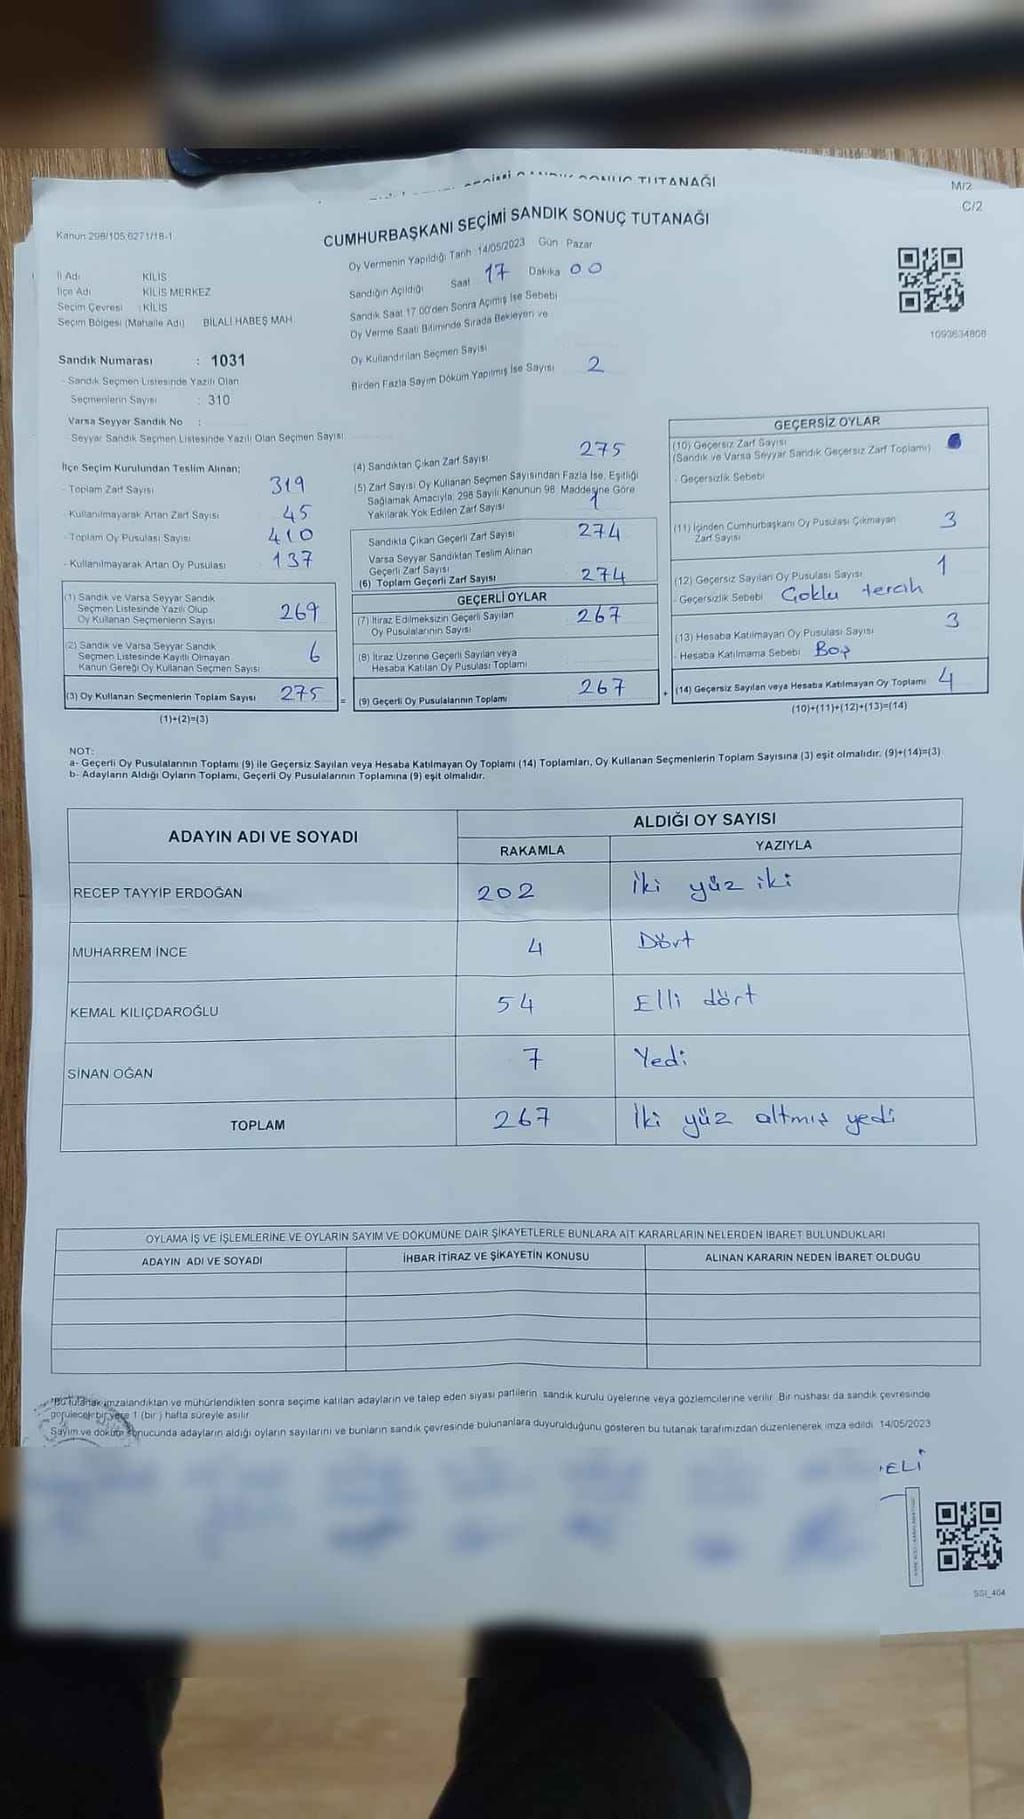 SONUÇ TUTANAĞI
M/2
C/2
Kanun 298/105,6271/18-1
CUMHURBAŞKANI SEÇİMİ SANDIK SONUÇ TUTANAĞI
Oy Vermenin Yapıldığı Tarih 14/05/2023 Gün Pazar
İl Adı KİLİS
İlçe Adı KİLİS MERKEZ
Seçim Çevresi : KİLİS
Seçim Bölgesi (Mahalle Adı) BİLALİ HABEŞ MAH.
Sandığın Açıldığı Saat 17 Dakika 00
Sandık Saat 17.00'den Sonra Açılmış İse Sebebi
Oy Verme Saati Bitiminde Sırada Bekleyen ve
Oy Kullandırılan Seçmen Sayısı
Birden Fazla Sayım Döküm Yapılmış İse Sayısı 2
1093634808
Sandık Numarası : 1031
- Sandık Seçmen Listesinde Yazılı Olan
Seçmenlerin Sayısı : 310
Varsa Seyyar Sandık No :
Seyyar Sandık Seçmen Listesinde Yazılı Olan Seçmen Sayısı:
İlçe Seçim Kurulundan Teslim Alınan;
- Toplam Zarf Sayısı 319
- Kullanılmayarak Artan Zarf Sayısı 45
- Toplam Oy Pusulası Sayısı 410
- Kullanılmayarak Artan Oy Pusulası 137
(1) Sandık ve Varsa Seyyar Sandık
Seçmen Listesinde Yazılı Olup
Oy Kullanan Seçmenlerin Sayısı 269
(2) Sandık ve Varsa Seyyar Sandık
Seçmen Listesinde Kayıtlı Olmayan
Kanun Gereği Oy Kullanan Seçmen Sayısı 6
(3) Oy Kullanan Seçmenlerin Toplam Sayısı 275
(1)+(2)=(3)
(4) Sandıktan Çıkan Zarf Sayısı 275
(5) Zarf Sayısı Oy Kullanan Seçmen Sayısından Fazla İse, Eşitliği
Sağlamak Amacıyla; 298 Sayılı Kanunun 98. Maddesine Göre
Yakılarak Yok Edilen Zarf Sayısı 1
Sandıkta Çıkan Geçerli Zarf Sayısı 274
Varsa Seyyar Sandıktan Teslim Alınan
Geçerli Zarf Sayısı
(6) Toplam Geçerli Zarf Sayısı 274
GEÇERLİ OYLAR
(7) İtiraz Edilmeksizin Geçerli Sayılan
Oy Pusulalarının Sayısı 267
(8) İtiraz Üzerine Geçerli Sayılan veya
Hesaba Katılan Oy Pusulası Toplamı
= (9) Geçerli Oy Pusulalarının Toplamı 267
GEÇERSİZ OYLAR
(10) Geçersiz Zarf Sayısı
(Sandık ve Varsa Seyyar Sandık Geçersiz Zarf Toplamı)
- Geçersizlik Sebebi
(11) İçinden Cumhurbaşkanı Oy Pusulası Çıkmayan
Zarf Sayısı 3
(12) Geçersiz Sayılan Oy Pusulası Sayısı 1
- Geçersizlik Sebebi Çoklu tercih
(13) Hesaba Katılmayan Oy Pusulası Sayısı 3
- Hesaba Katılmama Sebebi Boş
+ (14) Geçersiz Sayılan veya Hesaba Katılmayan Oy Toplamı 4
(10)+(11)+(12)+(13)=(14)
NOT:
a- Geçerli Oy Pusulalarının Toplamı (9) ile Geçersiz Sayılan veya Hesaba Katılmayan Oy Toplamı (14) Toplamları, Oy Kullanan Seçmenlerin Toplam Sayısına (3) eşit olmalıdır. (9)+(14)=(3)
b- Adayların Aldığı Oyların Toplamı, Geçerli Oy Pusulalarının Toplamına (9) eşit olmalıdır.
ADAYIN ADI VE SOYADI
ALDIĞI OY SAYISI
RAKAMLA YAZIYLA
RECEP TAYYİP ERDOĞAN 202 İki yüz iki
MUHARREM İNCE 4 Dört
KEMAL KILIÇDAROĞLU 54 Elli dört
SİNAN OĞAN 7 Yedi
TOPLAM 267 İki yüz altmış yedi
OYLAMA İŞ VE İŞLEMLERİNE VE OYLARIN SAYIM VE DÖKÜMÜNE DAİR ŞİKAYETLERLE BUNLARA AİT KARARLARIN NELERDEN İBARET BULUNDUKLARI
ADAYIN ADI VE SOYADI İHBAR İTİRAZ VE ŞİKAYETİN KONUSU ALINAN KARARIN NEDEN İBARET OLDUĞU
*Bu tutanak imzalandıktan ve mühürlendikten sonra seçime katılan adayların ve talep eden siyasi partilerin sandık kurulu üyelerine veya gözlemcilerine verilir. Bir nüshası da sandık çevresinde
görülecek bir yere 1 (bir) hafta süreyle asılır.
Sayım ve döküm sonucunda adayların aldığı oyların sayılarını ve bunların sandık çevresinde bulunanlara duyurulduğunu gösteren bu tutanak tarafımızdan düzenlenerek imza edildi. 14/05/2023
ELİ
SSİ_404